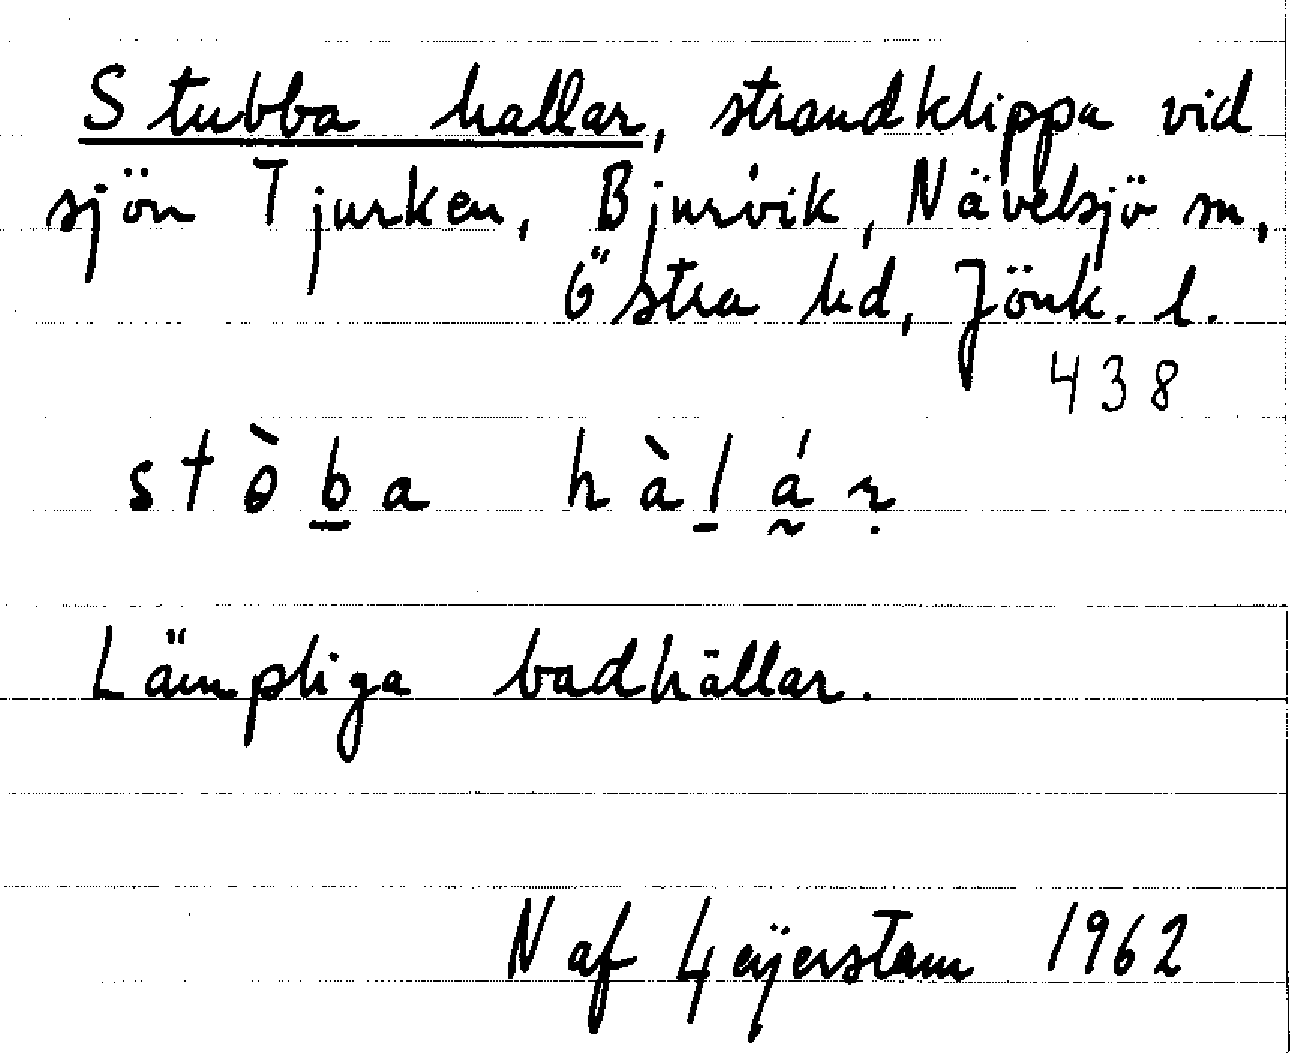 Stubba hallar, strandklippa vid
sjön Tjurken, Bjurvik, Nävelsjö sn,
Östra hd, Jönk. l.
438
stò̀b̲a hàl̲á̰ṛ
Lämpliga badhällar.
N af Geijerstam 1962